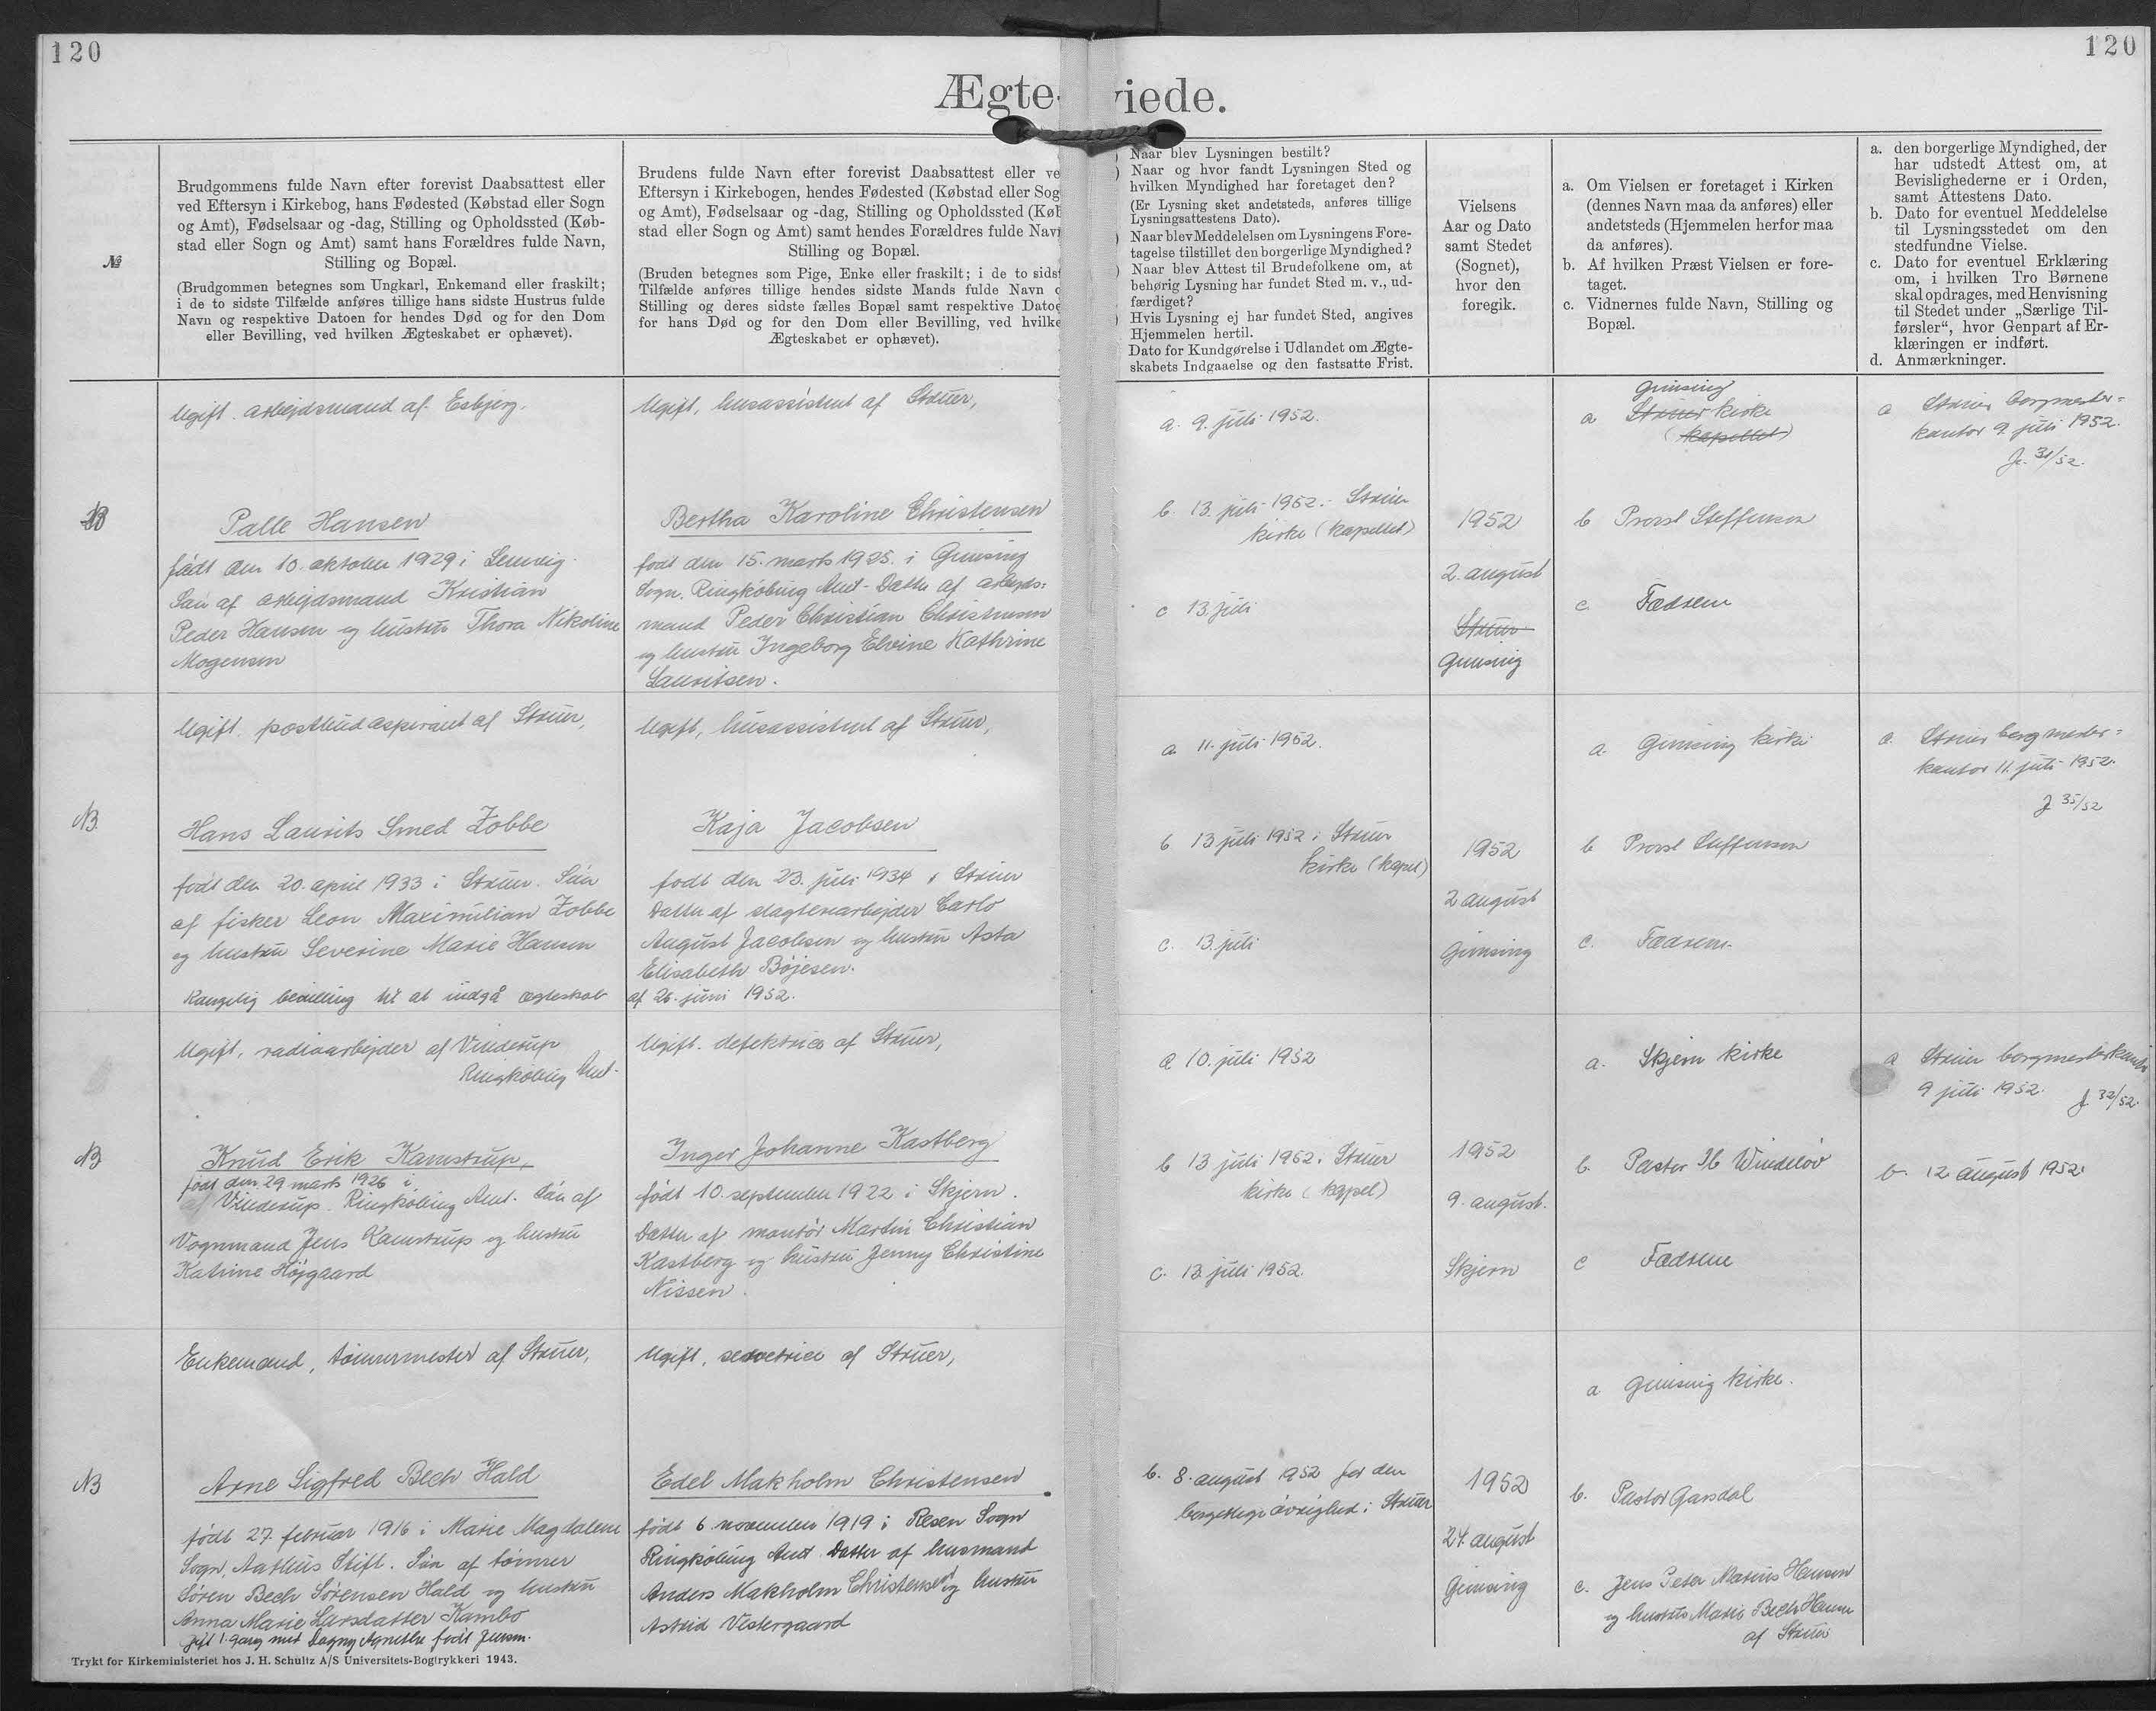 120
120
Ægte- viede.
№
Brudgommens fulde Navn efter forevist Daabsattest eller
ved Eftersyn i Kirkebog, hans Fødested (Købstad eller Sogn
og Amt), Fødselsaar og -dag, Stilling og Opholdssted (Køb-
stad eller Sogn og Amt) samt hans Forældres fulde Navn,
Stilling og Bopæl.
(Brudgommen betegnes som Ungkarl, Enkemand eller fraskilt;
i de to sidste Tilfælde anføres tillige hans sidste Hustrus fulde
Navn og respektive Datoen for hendes Død og for den Dom
eller Bevilling, ved hvilken Ægteskabet er ophævet).
Brudens fulde Navn efter forevist Daabsattest eller ve
Eftersyn i Kirkebogen, hendes Fødested (Købstad eller Sog
og Amt), Fødselsaar og -dag, Stilling og Opholdssted (Køb
stad eller Sogn og Amt) samt hendes Forældres fulde Navn
Stilling og Bopæl.
(Bruden betegnes som Pige, Enke eller fraskilt; i de to sidst
Tilfælde anføres tillige hendes sidste Mands fulde Navn o
Stilling og deres sidste fælles Bopæl samt respektive Datoe
for hans Død og for den Dom eller Bevilling, ved hvilke
Ægteskabet er ophævet).
) Naar blev Lysningen bestilt?
) Naar og hvor fandt Lysningen Sted og
hvilken Myndighed har foretaget den?
(Er Lysning sket andetsteds, anføres tillige
Lysningsattestens Dato).
) Naar blev Meddelelsen om Lysningens Fore-
tagelse tilstillet den borgerlige Myndighed?
) Naar blev Attest til Brudefolkene om, at
behørig Lysning har fundet Sted m. v., ud-
færdiget?
) Hvis Lysning ej har fundet Sted, angives
Hjemmelen hertil.
Dato for Kundgørelse i Udlandet om Ægte-
skabets Indgaaelse og den fastsatte Frist.
Vielsens
Aar og Dato
samt Stedet
(Sognet),
hvor den
foregik.
a. Om Vielsen er foretaget i Kirken
(dennes Navn maa da anføres) eller
andetsteds (Hjemmelen herfor maa
da anføres).
b. Af hvilken Præst Vielsen er fore-
taget.
c. Vidnernes fulde Navn, Stilling og
Bopæl.
a. den borgerlige Myndighed, der
har udstedt Attest om, at
Bevislighederne er i Orden,
samt Attestens Dato.
b. Dato for eventuel Meddelelse
til Lysningsstedet om den
stedfundne Vielse.
c. Dato for eventuel Erklæring
om, i hvilken Tro Børnene
skal opdrages, med Henvisning
til Stedet under „Særlige Til-
førsler“, hvor Genpart af Er-
klæringen er indført.
d. Anmærkninger.
Ugift. arbejdsmand af Esbjerg.
Palle Hansen
født den 10. oktober 1929 i Lemvig.
Søn af arbejdsmand Kristian
Peder Hansen og hustru Thora Nikoline
Mogensen
Ugift, husassistent af Struer,
Bertha Karoline Christensen
født den 15. marts 1925. i Gimsing
Sogn. Ringkøbing Amt - Datter af arbejds=
mand Peder Christian Christensen
og hustru Ingeborg Elvine Kathrine
Lauritsen.
a. 9. juli 1952.
b. 13. juli 1952. Struer
kirke (kapellet)
c 13. juli
1952
2. august
Struer
Gimsing
Gimsing
a Struer kirke
(kapellet)
b Provst Steffensen
c. Fædrene
a Struer borgmester=
kontor 9. juli 1952.
Jr. 31/52.
NB.
Ugift. postbudaspirant af Struer,
Hans Laurits Smed Zobbe
født den 20. april 1933 i Struer. Søn
af fisker Leon Maximilian Zobbe
og hustru Severine Marie Hansen
Kongelig bevilling til at indgå ægteskab
Ugift, husassistent af Struer,
Kaja Jacobsen
født den 23. juli 1934 i Struer
Datter af slagteriarbejder Carlo
August Jacobsen og hustru Asta
Elisabeth Bøjesen.
af 26. juni 1952.
a 11. juli 1952.
b 13 juli 1952 i Struer
kirke (kapel)
c. 13. juli
1952
2 august
Gimsing
a. Gimsing kirke
b Provst Steffensen
c. Fædrene
a. Struer borgmester=
kontor 11. juli 1952.
J 35/52
NB
Ugift, radioarbejder af Vinderup
Ringkøbing Amt.
Knud Erik Kamstrup,
født den 29 marts 1926 i
af Vinderup. Ringkøbing Amt. Søn af
Vognmand Jens Kamstrup og hustru
Katrine Højgaard
Ugift. defektrice af Struer,
Inger Johanne Kastberg
født 10. september 1922 i Skjern.
Datter af montør Martin Christian
Kastberg og hustru Jenny Christine
Nissen.
a 10. juli 1952
b 13 juli 1952. Struer
kirke (kapel)
c. 13 juli 1952.
1952
9. august.
Skjern
a. Skjern kirke
b. Pastor Ib Windeløv
c Fædrene
a Struer borgmesterkontor
9 juli 1952. J 32/52.
b. 12 august 1952.
NB
Enkemand, tømrermester af Struer,
Arne Sigfred Bech Hald
født 27. februar 1916 i Marie Magdalene
Sogn, Aarhus Stift. Søn af tømrer
Søren Bech Sørensen Hald og hustru
Anna Marie Larsdatter Kambo
gift 1. gang med Dagny Agnethe født Jensen.
Ugift, servetrice af Struer,
Edel Makholm Christensen
født 6 november 1919 i Resen Sogn
Ringkøbing Amt. Datter af husmand
Anders Makholm Christensen og hustru
Astrid Vestergaard
b. 8. august 1952 for den
borgerlige øvrighed i Struer
1952
24. august
Gimsing
a Gimsing kirke.
b. Pastor Garsdal
c. Jens Peter Marius Hansen
og hustru Marie Bech Hansen
af Struer
Trykt for Kirkeministeriet hos J. H. Schultz A/S Universitets-Bogtrykkeri 1943.